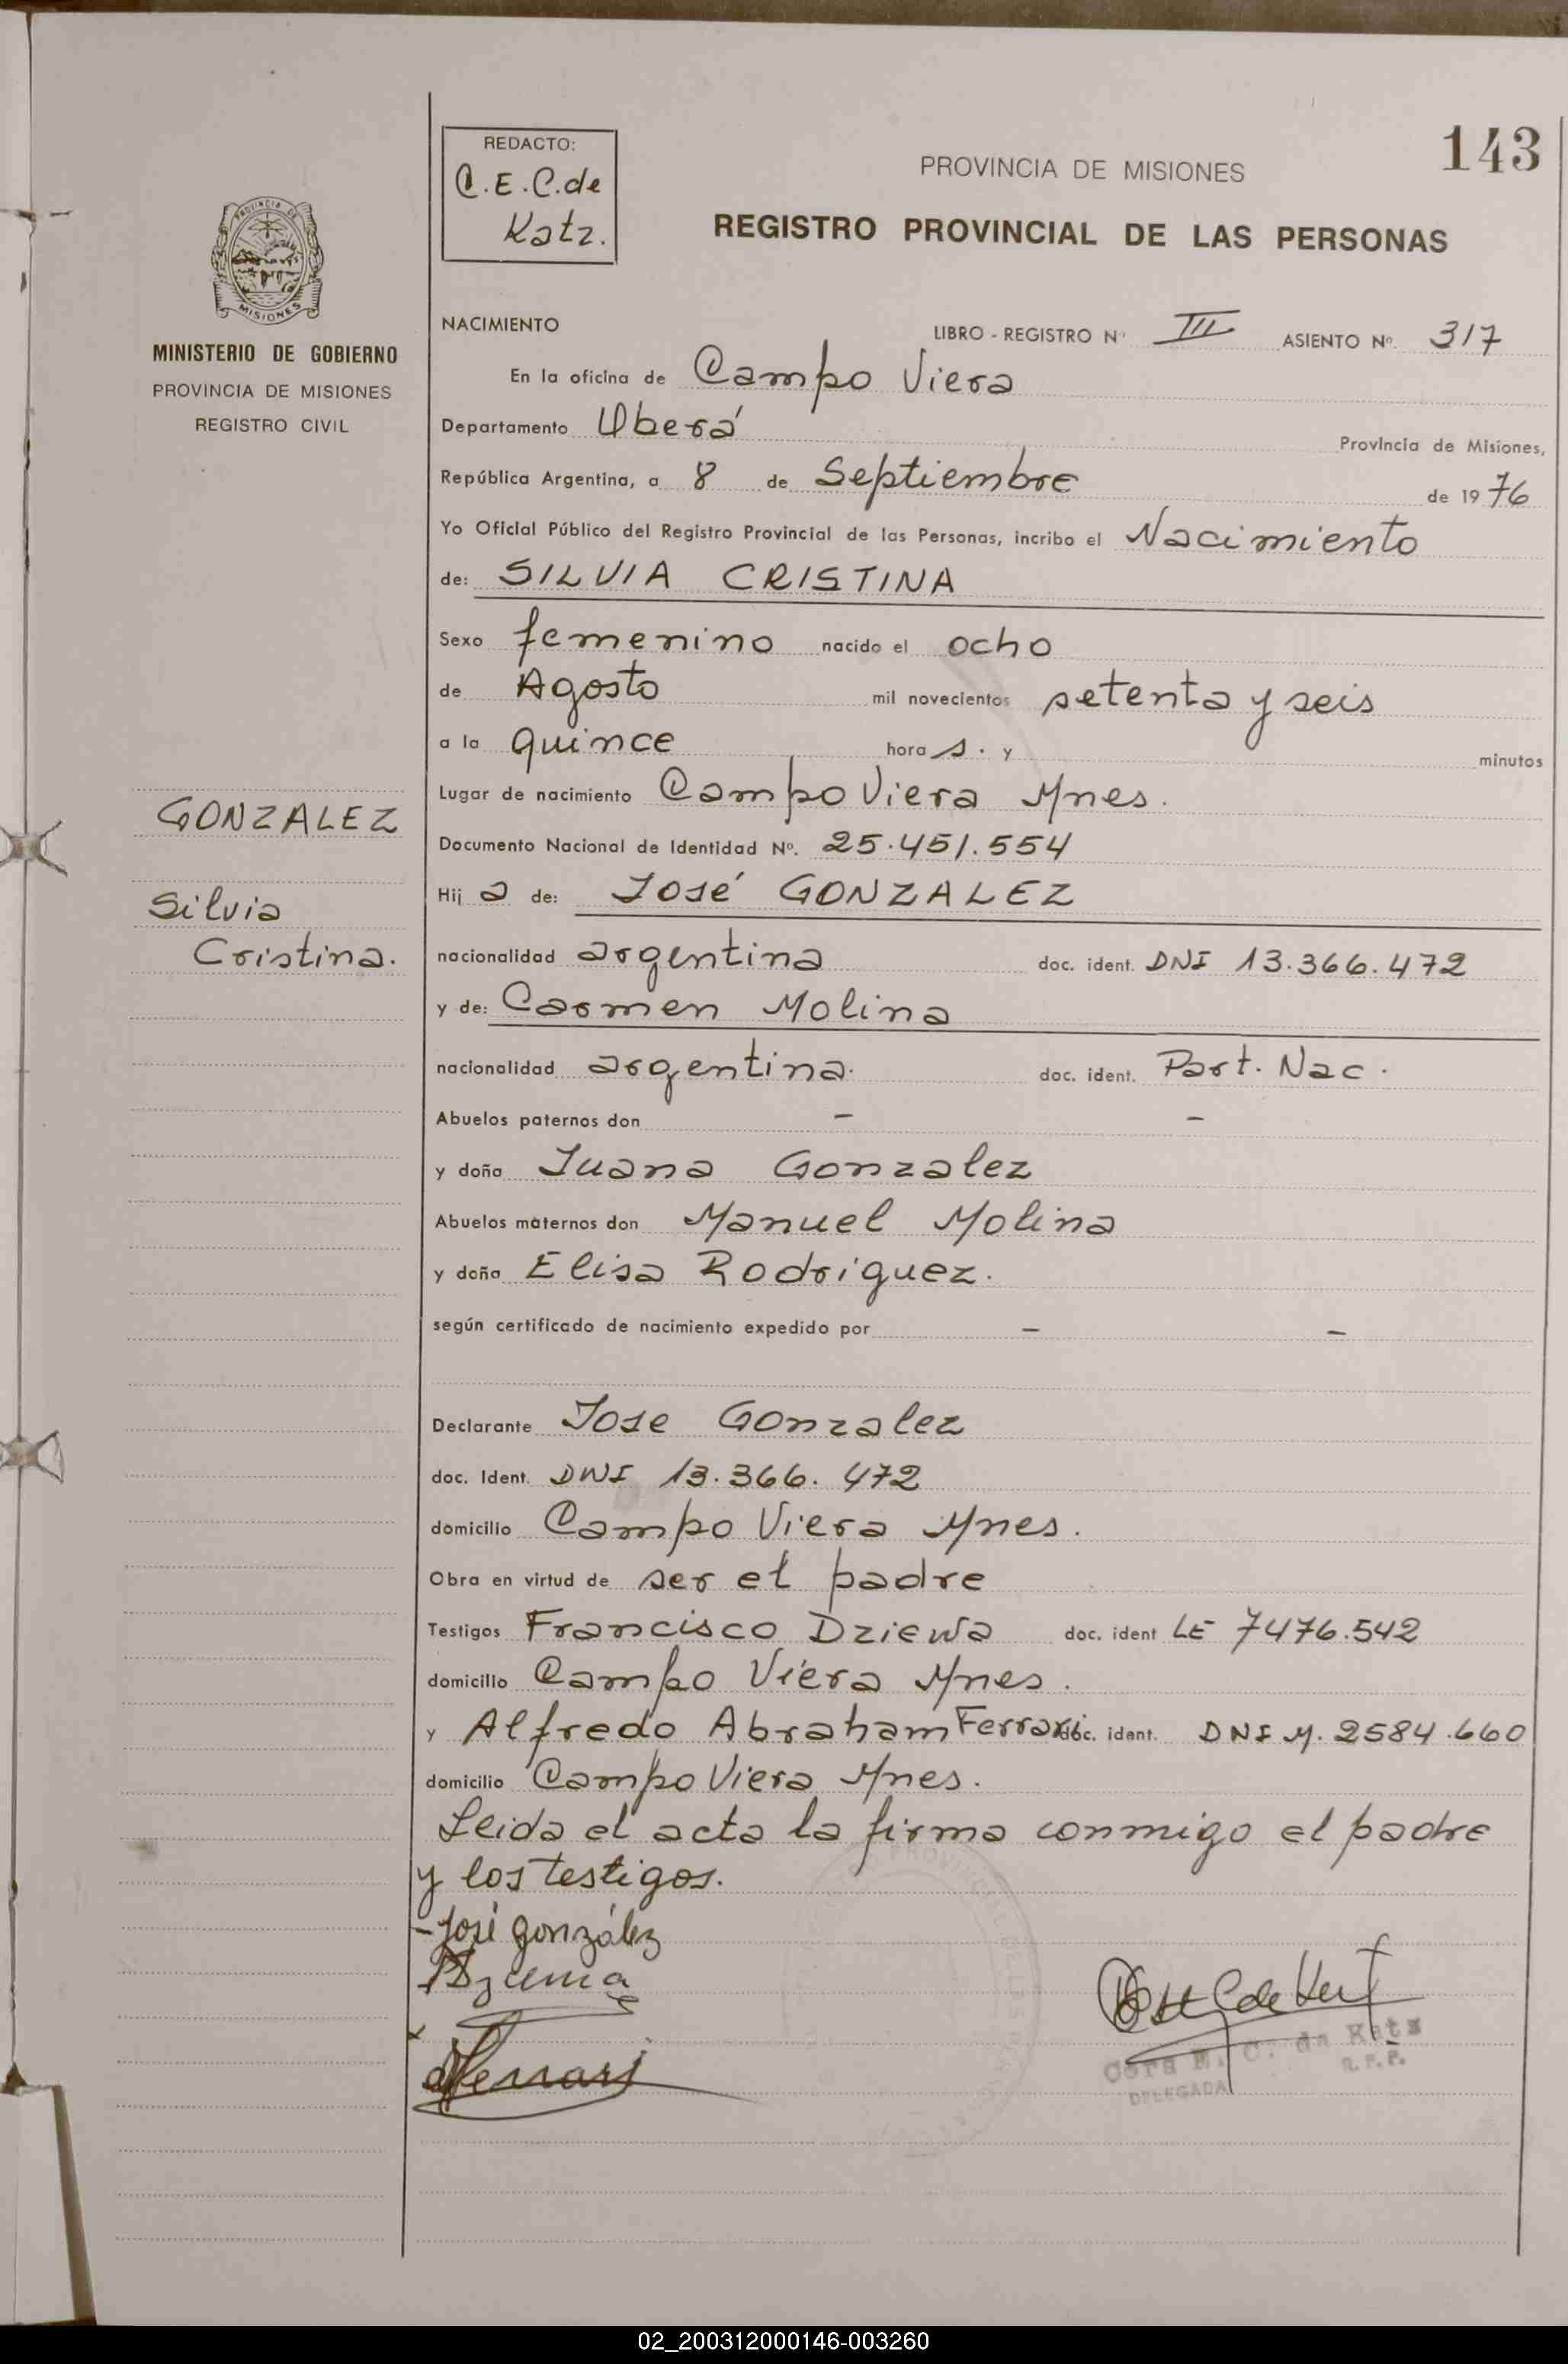 143
REDACTO:
C.E.C.de
Katz.
PROVINCIA DE MISIONES
REGISTRO PROVINCIAL DE LAS PERSONAS
PROVINCIA DE
MISIONES
MINISTERIO DE GOBIERNO
PROVINCIA DE MISIONES
REGISTRO CIVIL
NACIMIENTO LIBRO - REGISTRO Nº III ASIENTO Nº. 317
En la oficina de Campo Viera
Departamento Oberá Provincia de Misiones,
República Argentina, a 8 de Septiembre de 1976
Yo Oficial Público del Registro Provincial de las Personas, incribo el Nacimiento
de: SILVIA CRISTINA
Sexo femenino nacido el ocho
de Agosto mil novecientos setenta y seis
a la quince hora s. y minutos
Lugar de nacimiento Campo Viera Mnes.
GONZALEZ
Documento Nacional de Identidad Nº. 25.451.554
Hij a de: José GONZALEZ
Silvia
Cristina.
nacionalidad argentina doc. ident. DNI 13.366.472
y de: Carmen Molina
nacionalidad argentina. doc. ident. Part. Nac.
Abuelos paternos don - -
y doña Juana Gonzalez
Abuelos maternos don Manuel Molina
y doña Elisa Rodriguez.
según certificado de nacimiento expedido por - -
Declarante Jose Gonzalez
doc. Ident. DNI 13.366.472
domicilio Campo Viera Mnes.
Obra en virtud de ser el padre
Testigos Francisco Dziewa doc. ident LE 7476.542
domicilio Campo Viera Mnes.
y Alfredo Abraham Ferrari doc. ident. DNI M. 2584.660
domicilio Campo Viera Mnes.
Leida el acta la firma conmigo el padre
y los testigos.
- José gonzález
Dziewa
Ferrari
Cora E. C. de Katz
R.P.P.
DELEGADA
02_200312000146-003260